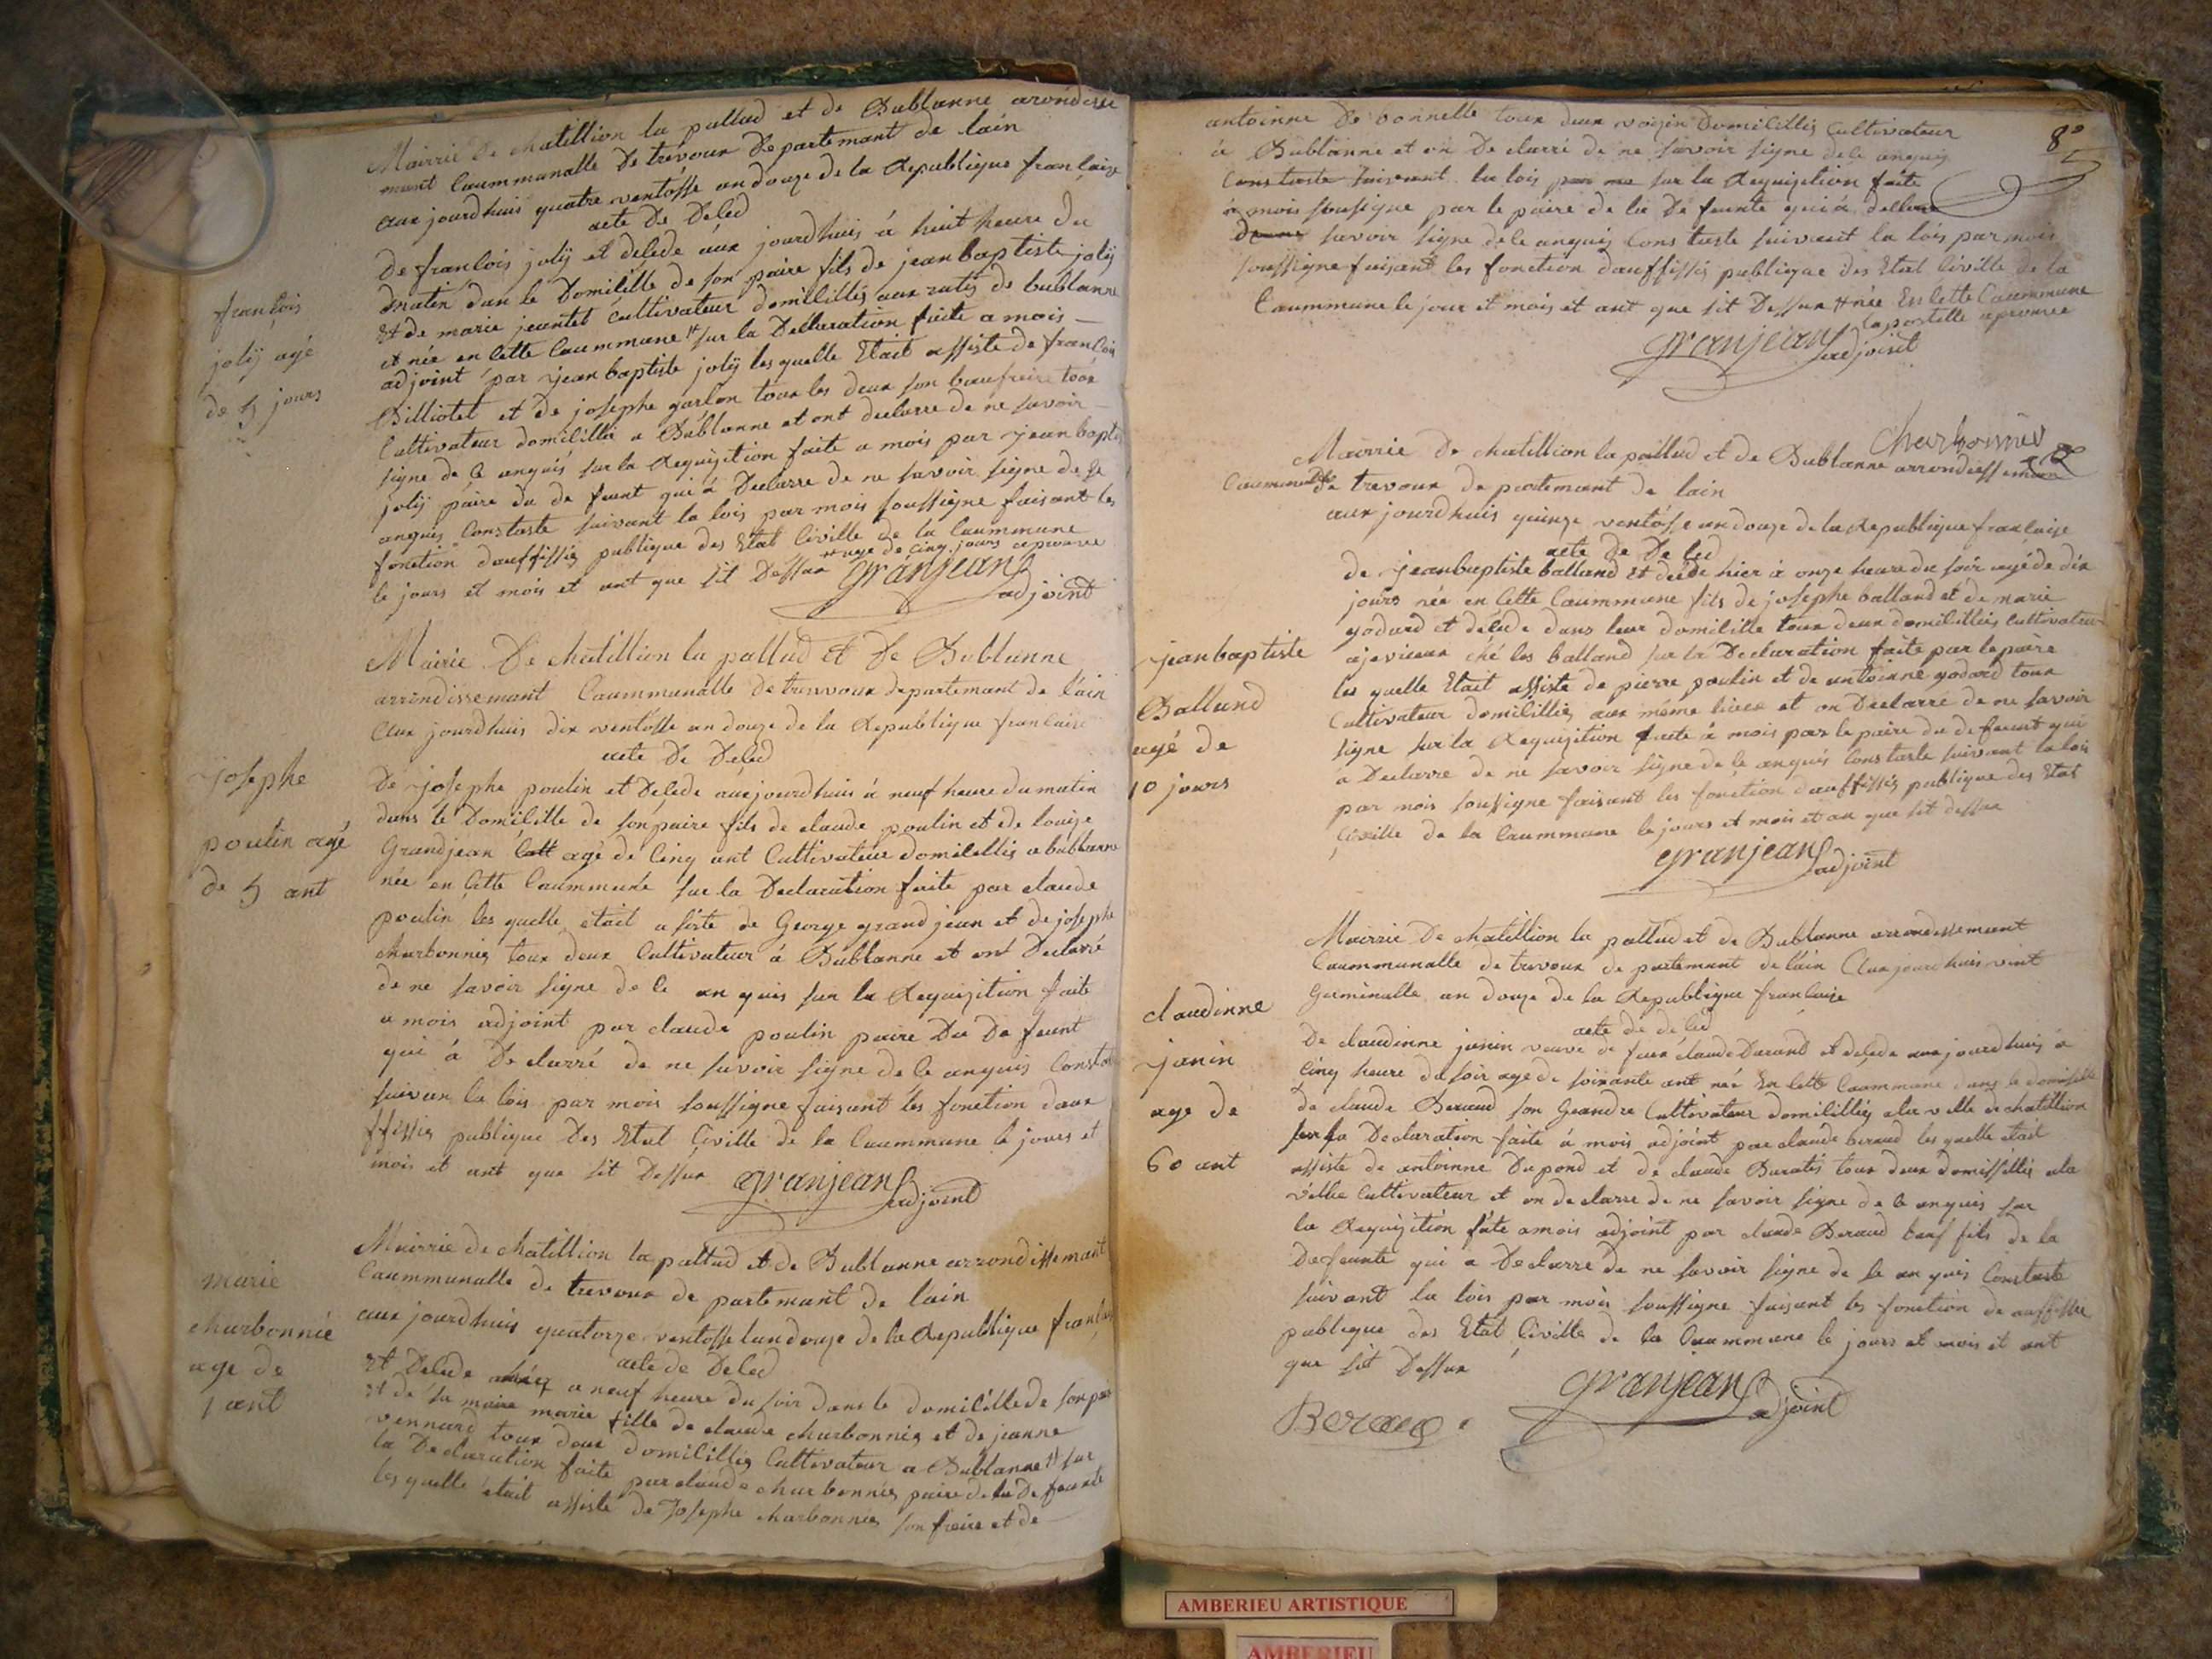 Mairrie De chatillion la pallud et de Bublanne arondisse
mant Caummunalle De trevoux De partemant de lain
aux jourdhuis quatre ventosse an douze de la Republique francaize
acte De Deced
françois
jolij agé
de 5 jours
De francois jolij et decede aux jourdhuis à huit heure du
matin dan le Domicille de son paire fils de jean baptiste jolij
Et de marie jeantet Cultivateur domicilliés aux ratis de bublanne
et née en Cette Caummune # sur la Declaration faite a mois –
adjoint par jean baptiste jolij les quelle Etait assiste de françois
Billiotet et de josephe garlon tous les deux son baufreire tous
Cultivateur domicillié a Bublanne et ont declarre de ne savoir –
signe de ce anquis sur la Requizition faite a mois par jean baptis
jolij paire du de feunt qui à Declarre de ne savoir signe de se
anquis Constaste suivant la lois par mois soussigne faisant les
fonction dauffissiés publique des Etat Civille de la Caummune
le jours et mois et ant que sit Dessux # age de cinq jours aprouvee
granjean
adjoint
Mairie De chatillion la pallud et De Bublanne
arrondissemant Caummunalle de trevoux departemant de lain
Aux jourdhuis dix ventosse an douze de la Republique francaise
acte De Deced
josephe
poulin agé
de 5 ant
De josephe poulin et Decede aux jourdhuis à neuf heure du matin
dans le Domicille de son paire fils de claude poulin et de louize
Grandjean agé de Cinq ant Cultivateur domicilliés a bublanne
née en Cette Caummune sur la Declaration faite par claude
poulin les quelle etait asiste de George grandjean et de josephe
charbonnies tous deux Cultivateur à Bublanne et ont Declarré
de ne savoir signe de Ce an quis sur la Requizition faite
a mois adjoint par claude poulin paire Du De feunt
qui à De clarré de ne savoir signe de Ce anquis Consta
suivan la lois par mois soussigne faisant les fonction daux
ffissies publique Des Etat Civille de la Caummune le jours et
mois et ant que sit Dessux
granjean
adjoint
Mairrie de chatillion la pallud et de Bublanne arrondissemant
Caummunalle de trevoux de partemant de lain
aux jourdhuis quatorze ventosse lan douze de la Republique francaise
acte de Deced
marie
charbonnie
age de
1 ant
Et Decede a neuf heure du soir dans le domicille de son pair
et de sa maire marie fille de claude charbonnies et de jeanne
vennard tous deux domicilliés Cultivateur a Bublanne # sur
la Declaration faite par claude charbonnies paire de la De feunte
les quelle etait assiste de Josephe charbonnies son freire et de
8
antoinne De bonnelle toux deux voizin Domicilliés Cultivateur
à Bublanne et on De clarré de ne savoir signe dele anquis
Constaste suivant la lois sur la Requizition faite
à mois sousigne par le paire de la De feunte qui à dellare
savoir signe dele anquis Cons taste suivant la lois par mois
soussigne faisant les fonction dauffissiés publique des Etat Civille de la
Caummune le jour et mois et ant que sit Dessux # née En Cette Caummune
lapostille aprouvee
granjean
adjoint
Charbonnier
Mairrie De chatillion la pallud et de Bublanne arrondiessemant
Caummunalle de trevoux de partemant de lain
aux jourdhuis quinze ventosse an douze de la Republique francaise
acte De De ced
jean baptiste
Balland
agé de
10 jours
de jeanbaptiste balland Et decede hier à onze heure du soir agé de dix
jours née en Cette Caummune fils de josephe balland et de marie
godard et décéde dans leur domicille toux deux domicilliés Cultivateur
ajevieux ché les balland sur la Declaration faite par le paire
les quelle Etait assiste de pierre poulin et de antoinne godard tous
Cultivateur domicilliés aux même lieux et on Declarré de ne savoir
signe sur la Requizition faite à mois par le paire du de feunt qui
a Declarre de ne savoir signe de le anquis Constaste suivant la lois
par mois soussigne faisant les fonction dauffissiés publique des Etat
Civille de la Caummune le jours et mois et an que sit dessux
granjean
adjoint
Mairrie De chatillion la pallud et de Bublanne arrondissemant
Caummunalle de trevoux de partemant de lain Aux jourdhuis vint
Germinalle an douze de la Republique francaize
acte de déced
claudinne
janin
age de
60 ant
De claudinne janin veuve de feux claude Durand et decede aux jourdhuis à
Cinq heure du soir age de soixante ant née En Cette Caummune dans le domissille
de claude Beraud son Geandre Cultivateur domicilliés ala ville de chatillion
sur la Declaration faite à mois adjoint par claude beraud les quelle etait
assiste de antoinne Dupond et de claude Buratis toux deux domissilliés ala
ville Cultivateur et on declarre de ne savoir signe de ce anquis sur
la Requizition faite amois adjoint par claude Beraud beaux fils de la
Defeunte qui a Declarre de ne savoir signe de se an quis Constaste
suivant la lois par mois soussigne faisant les fonction de auffissié
publique des Etat Civille de la Caummune le jours et mois et ant
que sit Dessux
granjean
adjoint
Beraud
AMBERIEU ARTISTIQUE
AMBERIEU